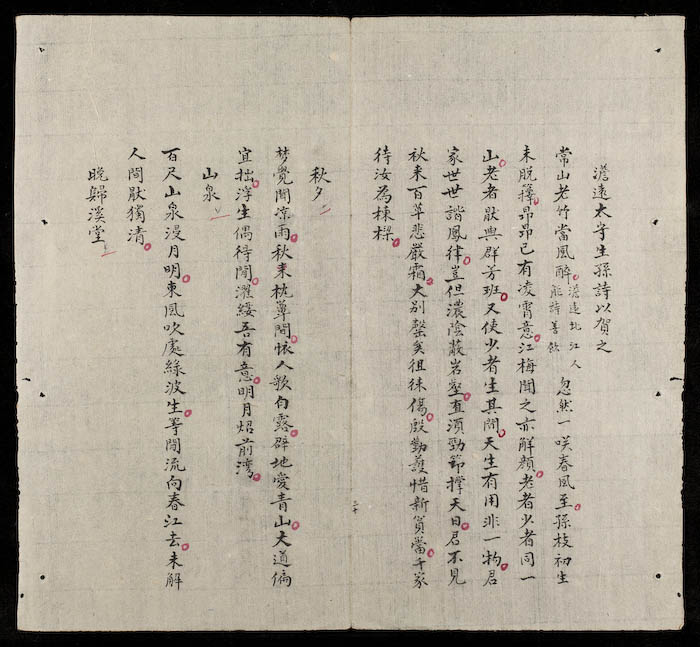 澹遠太守生孫詩以賀之
常山老竹當風醉澹遠北江人能詩善飲忽然一咲春風至孫枝初生
未脫籜昂昂已有凌霄意江梅聞之亦解顏老者少者同一
山老者猒與群芳班又使少者生其間天生有用非一拘君
家世世諧鳳律豈但濃陰蔽岩壑直須勁節撐天日君不見
秋来百草悲嚴霜大別罄奚徂徠傷殷勤護惜新篔簹千家
待汝為棟樑
秋夕
梦覺聞凉雨秋来枕簟間懷人歌白露辟地愛青山大道偏
宜拙浮生偶得閒濯綏吾有意明月炤前湾
山泉
百尺山泉漫月明東風吹處綠波生等閒流向春江去未解
人間猒獨清
晚歸溪堂